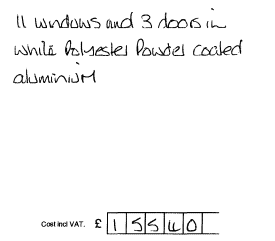 11 windows and 3 doors in
white Polyester Powder coated
aluminium
Cost incl VAT. £ 15540